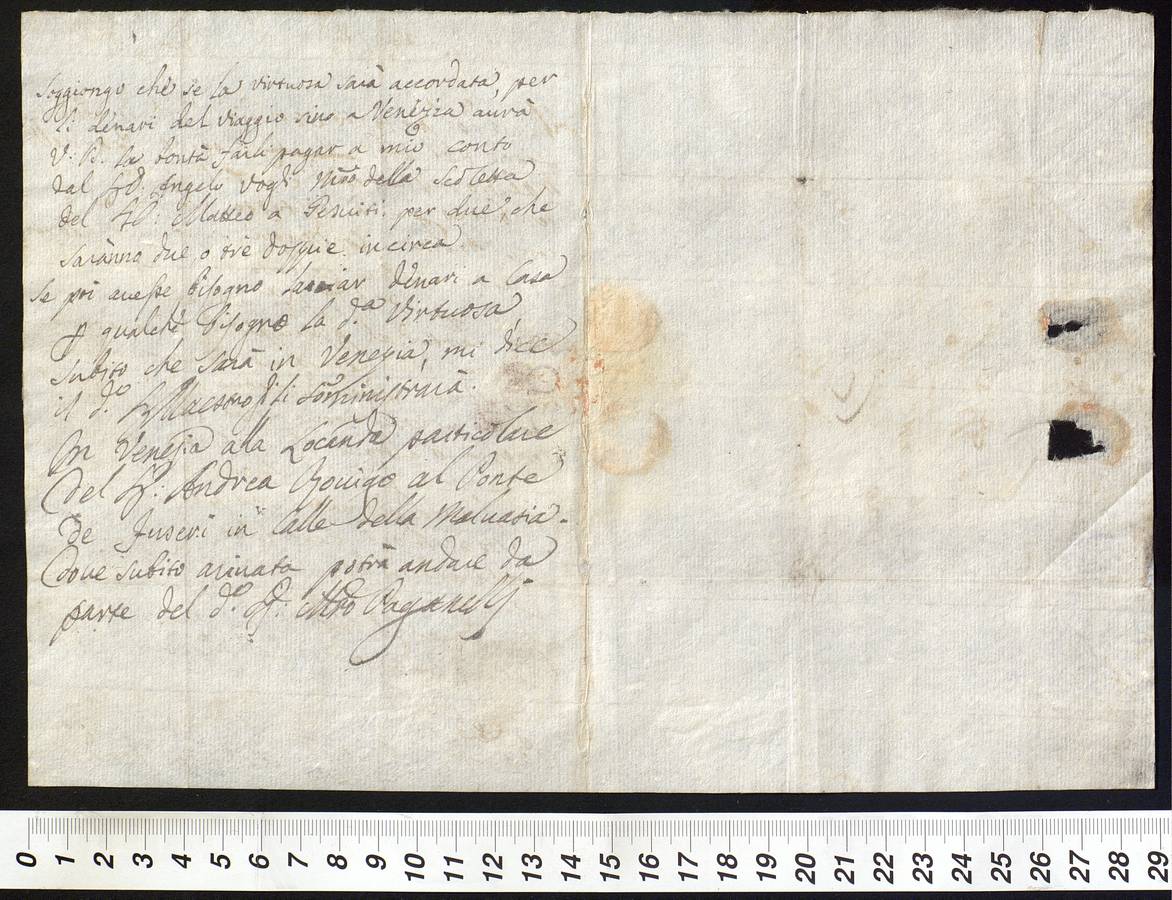 Soggiongo che se la virtuosa sarà accordata, per
li denari del viaggio sino a Venezia aurà
V. R. la bontà farli pagar a mio conto
dal Sr. Angelo Vogli della
del Matteo a per due, che
saranno due o tre doppie incirca
se poi auesse bisogno lasciar denari a Casa
p qualche bisogno la d.a Virtuosa
subito che sarà in Venezia, mi dice
il d.o Maestro gli somministrarà.
In Venezia alla Locanda particolare
del Sr. Andrea Rouigo al Ponte
de Fuseri in Calle della Maluasia.
doue subito ariuata potrà andare da
parte del d.o Sr. Paganelli
0 1 2 3 4 5 6 7 8 9 10 11 12 13 14 15 16 17 18 19 20 21 22 23 24 25 26 27 28 29